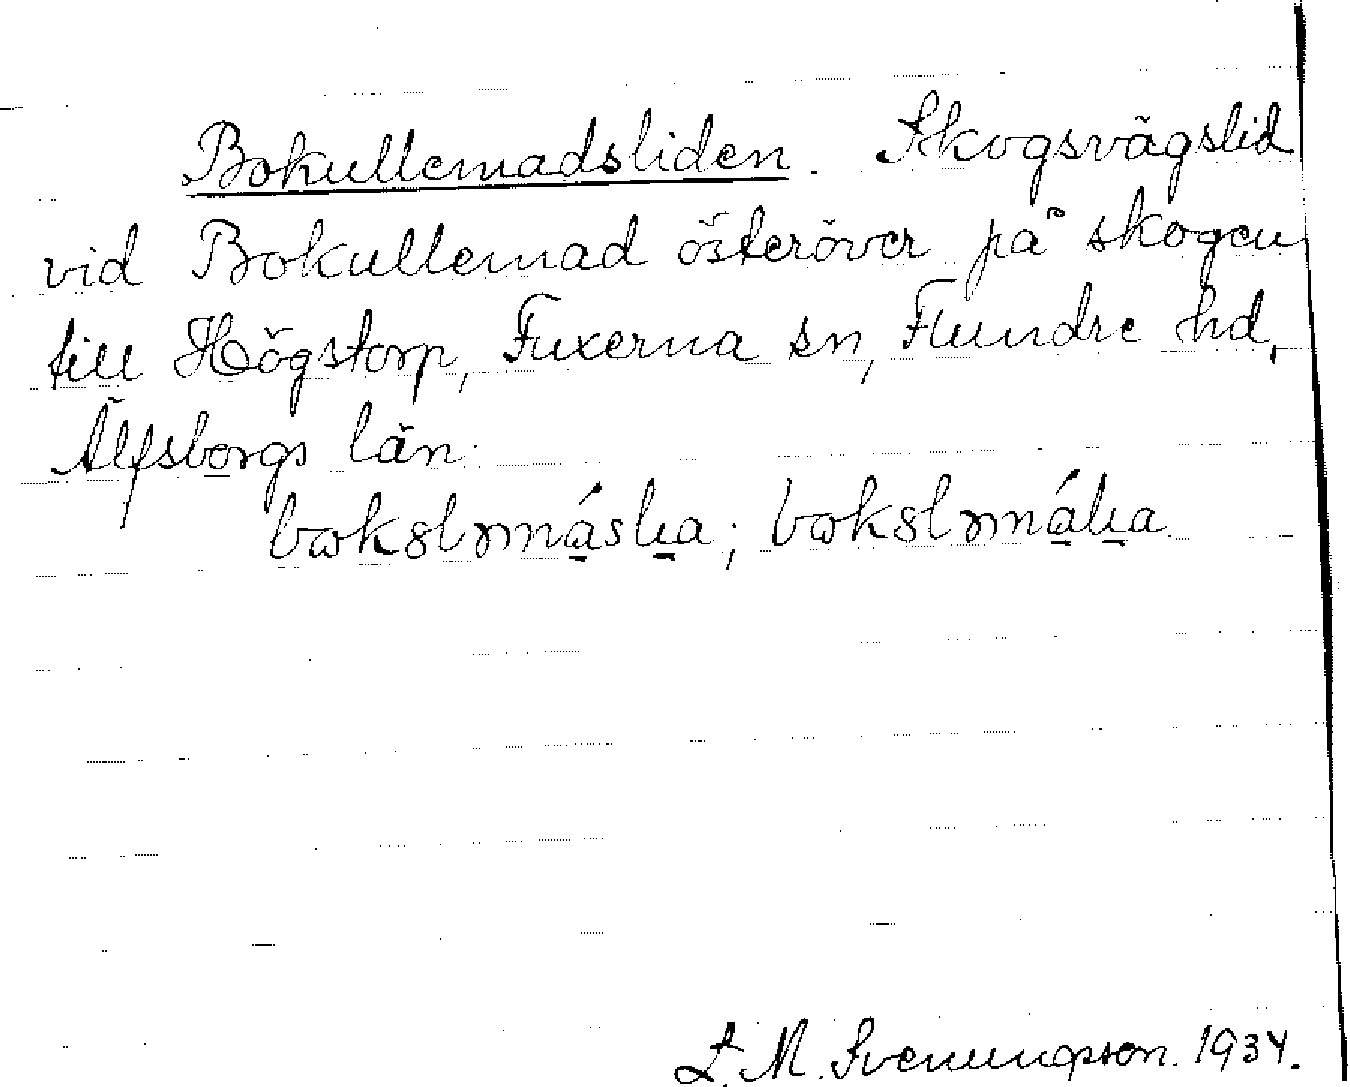 Bokullemadsliden. Skogsvägslid
vid Bokullemad österöver på skogen
till Högstorp, Fuxerna sn, Flundre hd,
Älfsborgs län.
L. M. Svenungsson. 1934.